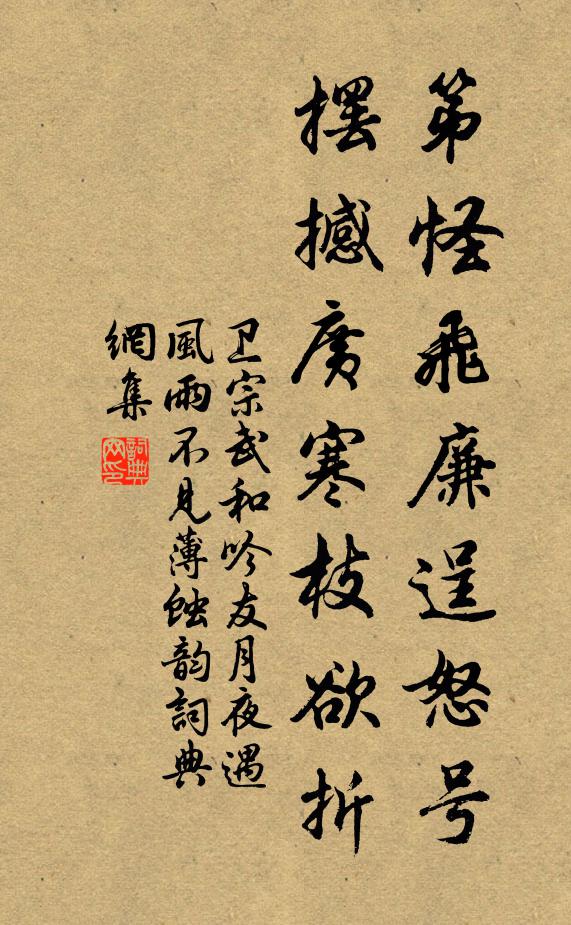 第怪飛廉逞怒号
擺撼廣寒枝欲折
卫宗武和吟友月夜遇
風雨不見薄蝕韵詞典
網集
詞典
网印